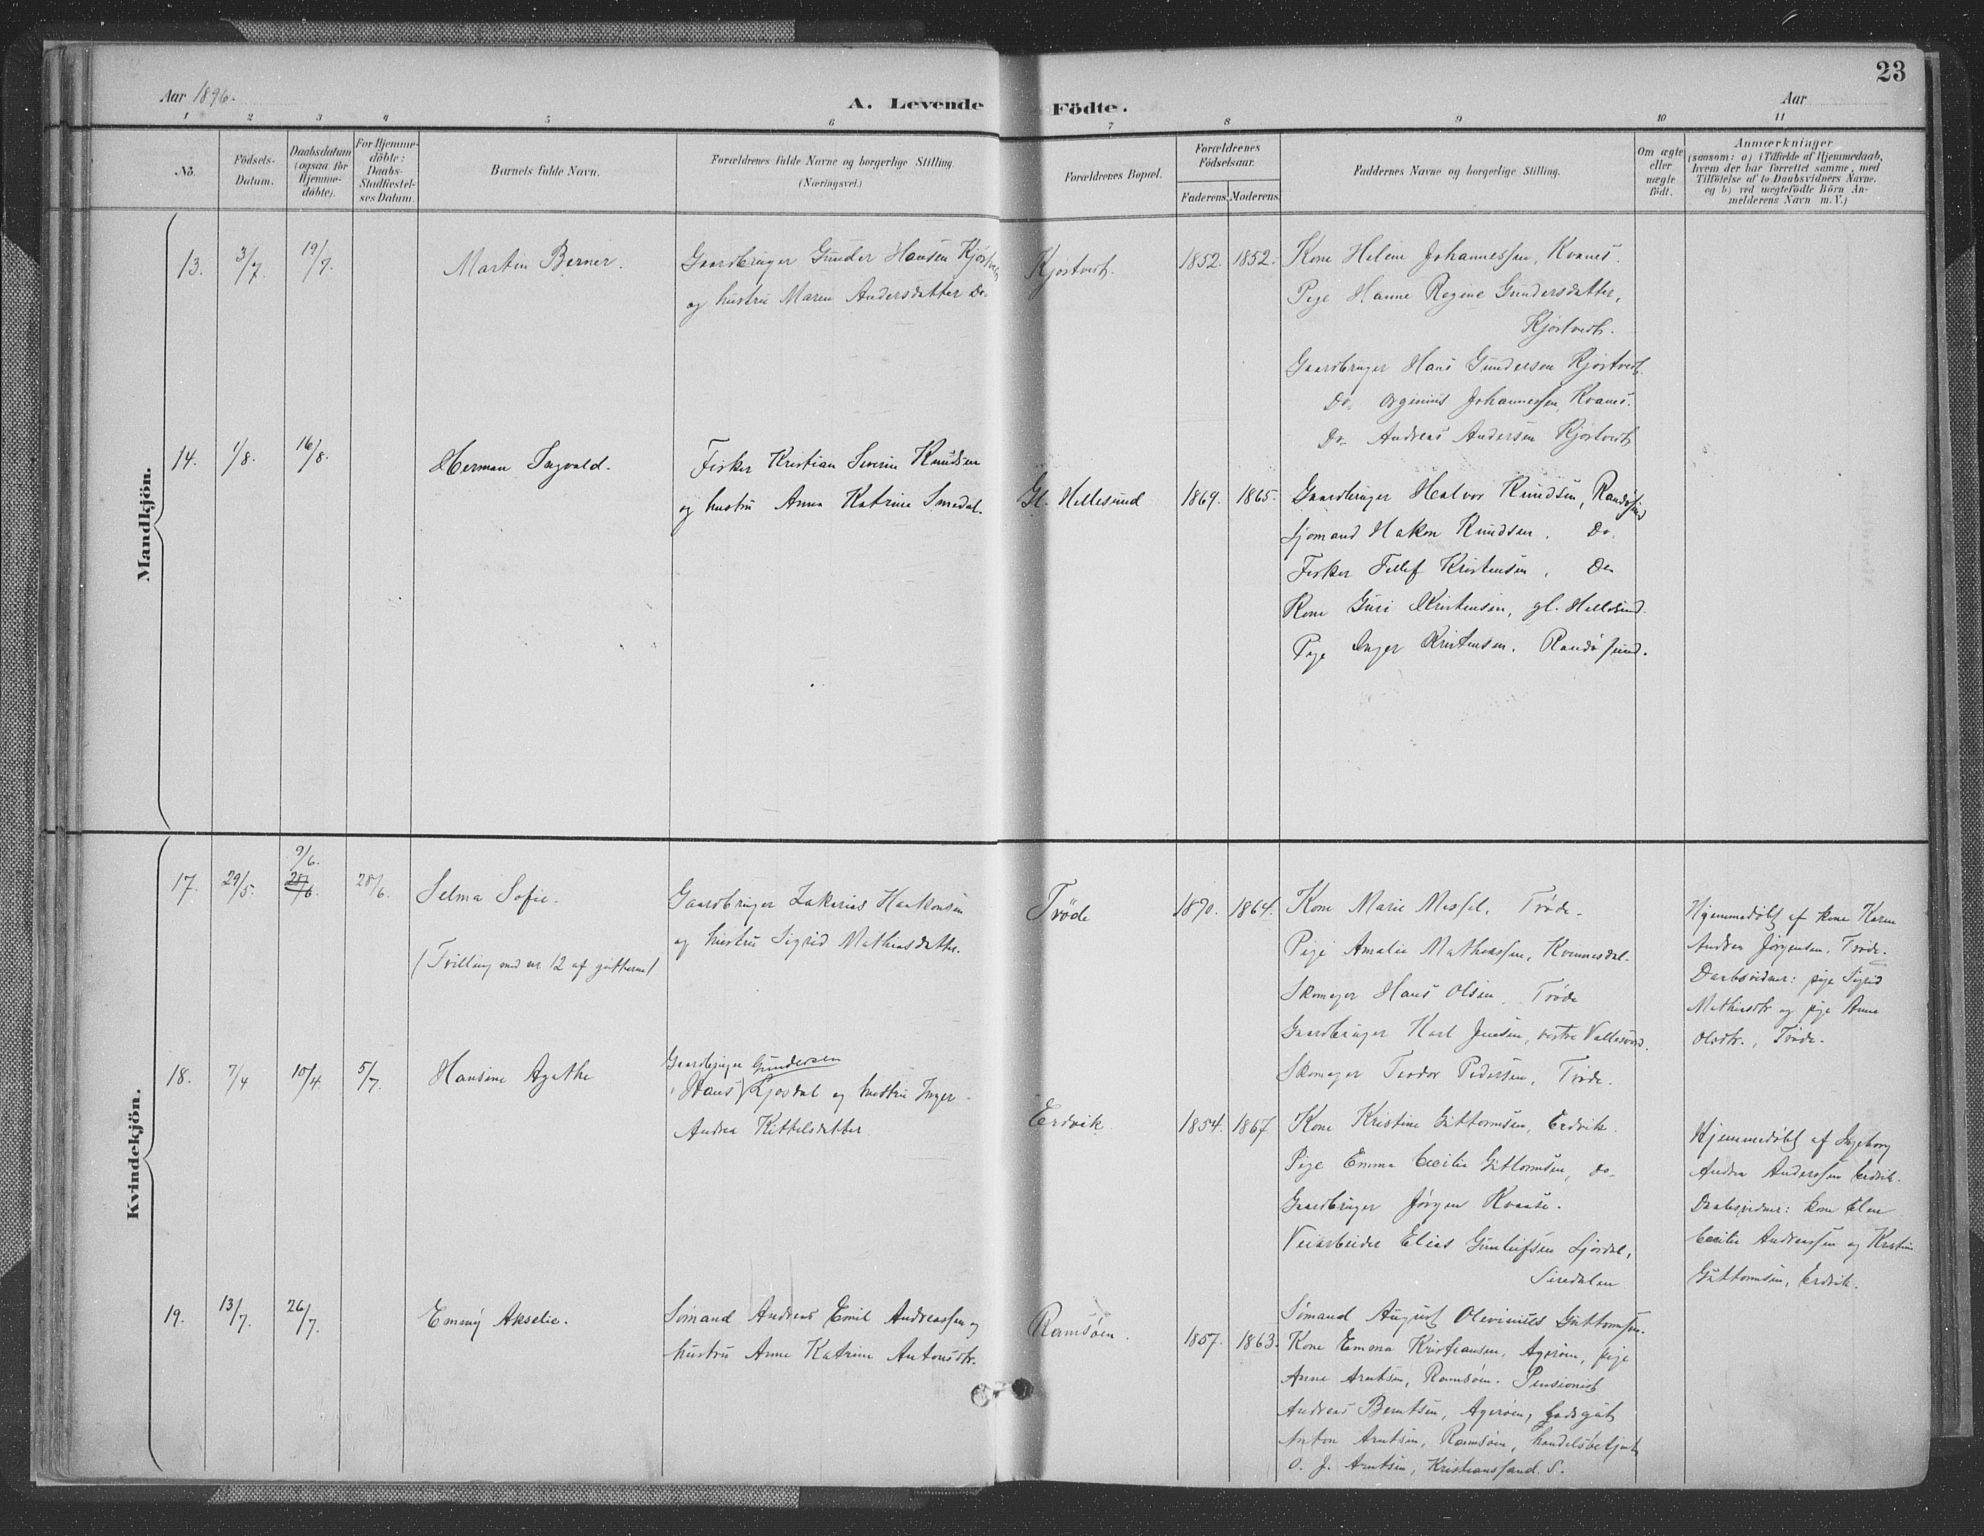 23
Aar 1896.
A. Levende Födte.
Aar
1 2 3 4 5 6 7 8 9 10 11
No.
Födsels-Datum.
Daabsdatum (ogsaa for Hjemme-döbte).
For Hjemme-döbte: Daabs-Stadfæstel-ses Datum.
Barnets fulde Navn.
Forældrenes fulde Navne og borgerlige Stilling. (Næringsvei.)
Forældrenes Bopæl.
Forældrenes Födselsaar.
Faderens. Moderens.
Faddernes Navne og borgerlige Stilling.
Om ægte eller uægte födt.
Anmærkninger
(saasom: a) i Tilfælde af Hjemmedaab,
hvem der har forrettet samme, med
Tilföielse af to Daabsvidners Navne,
og b) ved uægtefödte Börn An-
melderens Navn m. V.)
Mandkjön.
13. 3/7. 19/7. Martin Berner.
Gaardbruger Gunder Hansen Kjøstvedt
og hustru Maren Andersdatter Do.
Kjøstvedt. 1852. 1852.
Kone Helene Johannessen, Kvanes.
Pige Hanne Regine Gundersdatter,
Kjøstvedt.
Gaardbruger Hans Gundersen Kjøstvedt.
Do. Johannessen, Kvanes.
Do. Andreas Andersen Kjøstvedt
14. 1/8. 16/8. Herman Ingvald.
Fisker Kristian Severin Knudsen
og hustru Anna Katrine Smedal.
Gl. Hellesund 1869. 1865.
Gaardbruger Halvor Knudsen, Randøsund
Sjømand Hakon Knudsen. Do.
Fisker Tellef Kristensen, Do
Kone Guri Kristensen, gl. Hellesund.
Pige Inger Kristensen. Randøsund.
Kvindekjön.
17. 29/5. 9/6. 28/6. 28/6. Selma Sofie.
(Tvilling med nr. 12 af gutterne)
Gaardbruger Zakarias Haakonsen
og hustru Sigrid Mathiasdatter.
Trøde 1870. 1864.
Kone Marie Messel, Trøde.
Pige Amalie Mathiassen, Kvinnesdal.
Skomager Hans Olsen, Trøde
Gaardbruger Karl Jensen, vestre Vallesværd.
Skomager Teodor Pedersen, Trøde.
Hjemmedøbt af kone Karen
Andrea Jørgensen, Trøde.
Daabsvidner: pige Sigrid
Mathiasdtr og pige Anne
Olsdtr., Trøde.
18. 7/4 10/4. 5/7. Hansine Agathe
Gaardbruger Gundersen
(Hans) Ljosdal og hustru Inger
Andrea Kittelsdatter.
Erdvik. 1854. 1867.
Kone Kristine Guttormsen, Erdvik.
Pige Emma Cecilie Guttormsen, Do
Gaardbruger Jørgen Kvaase.
Veiarbeider Elias Gunleifsen Ljosdal,
Siredalen
Hjemmedøbt af Ingeborg
Andrea Anderssen Erdvik.
Daabsvidner: kone Elen
Cecilie Andreassen og Kristine
Guttormsen, Erdvik.
19. 13/7. 26/7. Emmy Akselie.
Sømand Andreas Emil Andreassen og
hustru Anne Katrine Antonsdtr.
Ramsøen. 1857. 1863.
Sømand August Olevinius Guttormsen.
Kone Emma Kristiansen, Agerøen, pige
Anne Arntsen, Ramsøen. Pensionist
Andreas Berntsen, Agerøen,
Anton Arntsen, Ramsøen, handelsbetjent
O. J. Arntsen, Kristianssand. S.